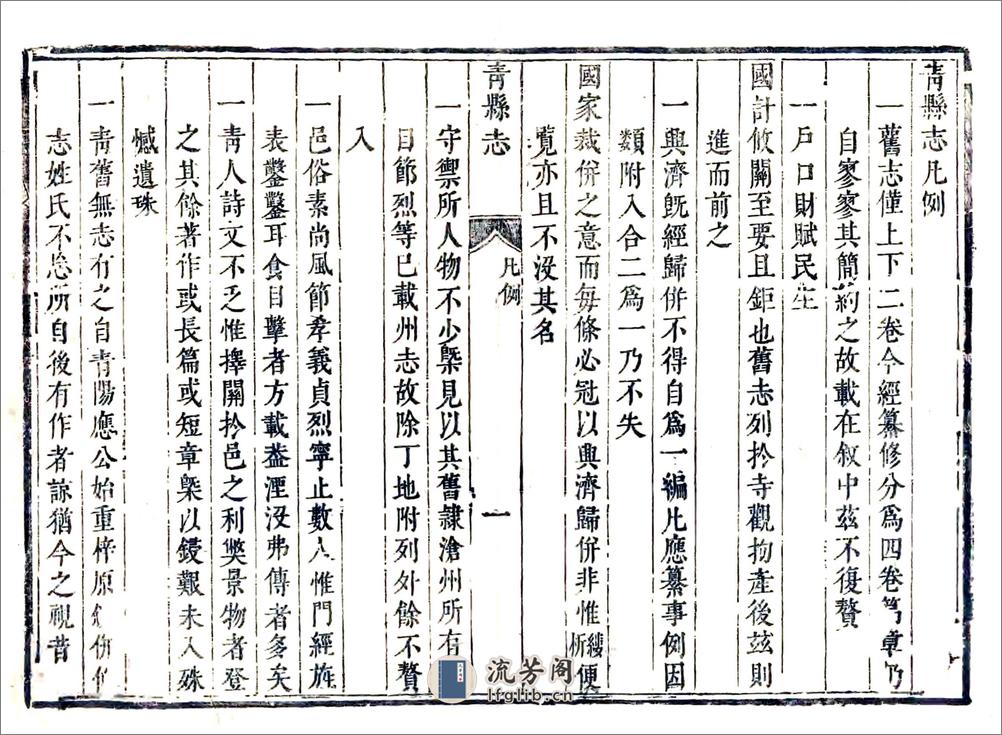 青縣志凡例
一舊志僅上下二卷今經纂修分爲四卷篇章乃
自寥寥其簡約之故載在敘中茲不復贅
一戶口財賦民生
國計攸關至要且鉅也舊志列於寺觀物產後茲則
進而前之
一興濟旣經歸併不得自爲一編凡應纂事例因
類附入合二爲一乃不失
國家裁併之意而每條必冠以興濟歸併非惟縷析便
覽亦且不沒其名
青縣志
凡例
一
一守禦所人物不少槩見以其舊隷滄州所有
目節烈等已載州志故除丁地附列外餘不贅
入
一邑俗素尚風節孝義貞烈寧止數人惟門經旌
表鑿鑿耳食目擊者方載葢湮沒弗傳者多矣
一靑人詩文不乏惟擇關於邑之利獘景物者登
之其餘著作或長篇或短章槩以鋟艱未入殊
憾遺珠
一靑舊無志有之自青陽應公始重梓原
志姓氏不忘所自後有作者諒猶今之視昔
流芳阁
lfglib.cn